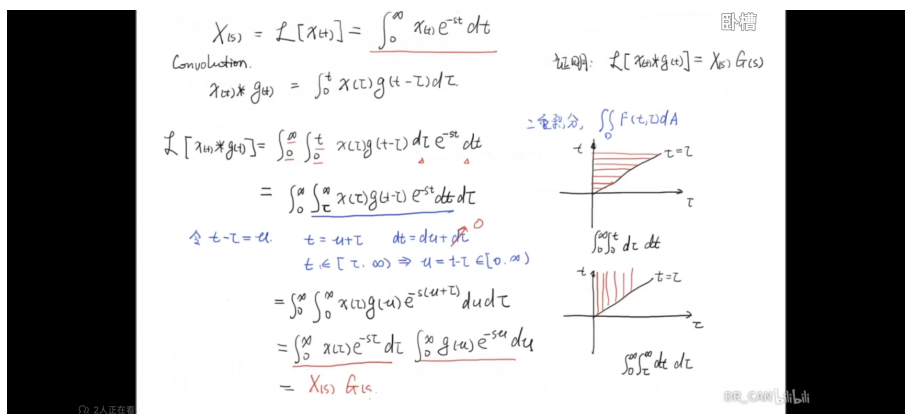 卧槽
X(s) = ℒ[x(t)] = ∫₀^∞ x(t) e^{-st} dt
Convolution.
x(t) * g(t) = ∫₀^t x(τ) g(t-τ) dτ.
证明: ℒ[x(t)*g(t)] = X(s) G(s)
ℒ[x(t)*g(t)] = ∫₀^∞ ∫₀^t x(τ) g(t-τ) dτ e^{-st} dt
= ∫₀^∞ ∫_τ^∞ x(τ) g(t-τ) e^{-st} dt dτ
令 t-τ = u. t = u+τ dt = du + dτ 0
t ∈ [τ, ∞) ⇒ u = t-τ ∈ [0, ∞)
= ∫₀^∞ ∫₀^∞ x(τ) g(u) e^{-s(u+τ)} du dτ
= ∫₀^∞ x(τ) e^{-sτ} dτ ∫₀^∞ g(u) e^{-su} du
= X(s) G(s)
二重积分, ∬₀ F(t,τ) dA
t
t=τ
τ
∫₀^∞ ∫₀^t dτ dt
t
t=τ
τ
∫₀^∞ ∫_τ^∞ dt dτ
2人正在看
DR_CAN bilibili